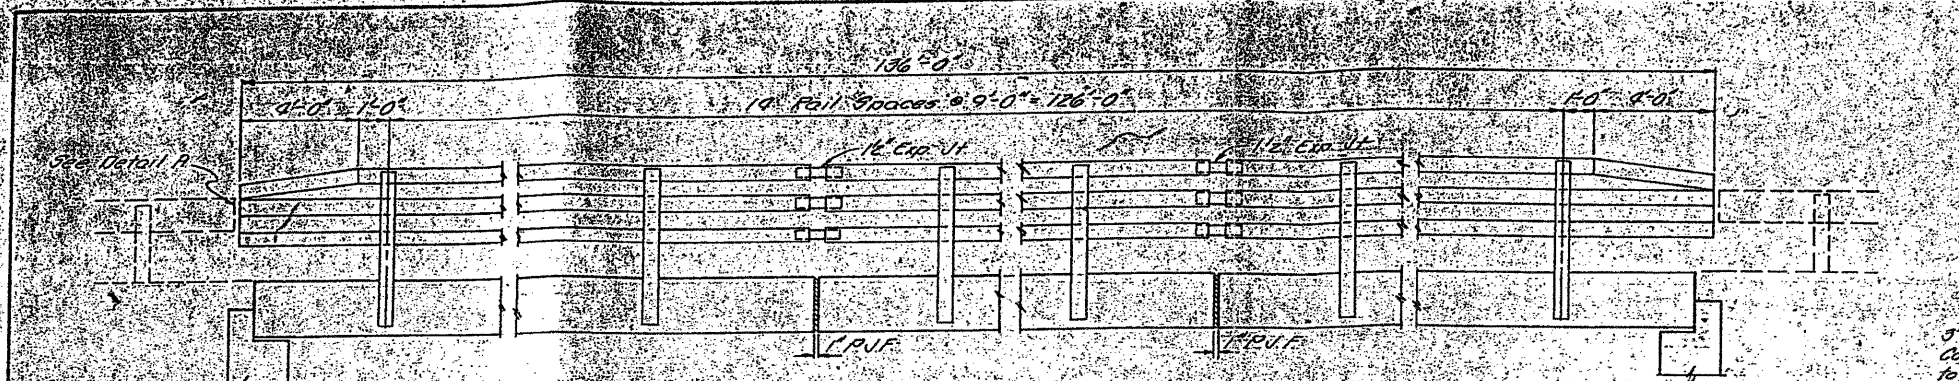 136'-0"
4'-0" 1'-0"
14 Rail Spaces @ 9'-0" = 126'-0"
1'-0" 4'-0"
See Detail A
1½" Exp. Jt.
1½" Exp. Jt.
1" P.J.F.
1" P.J.F.